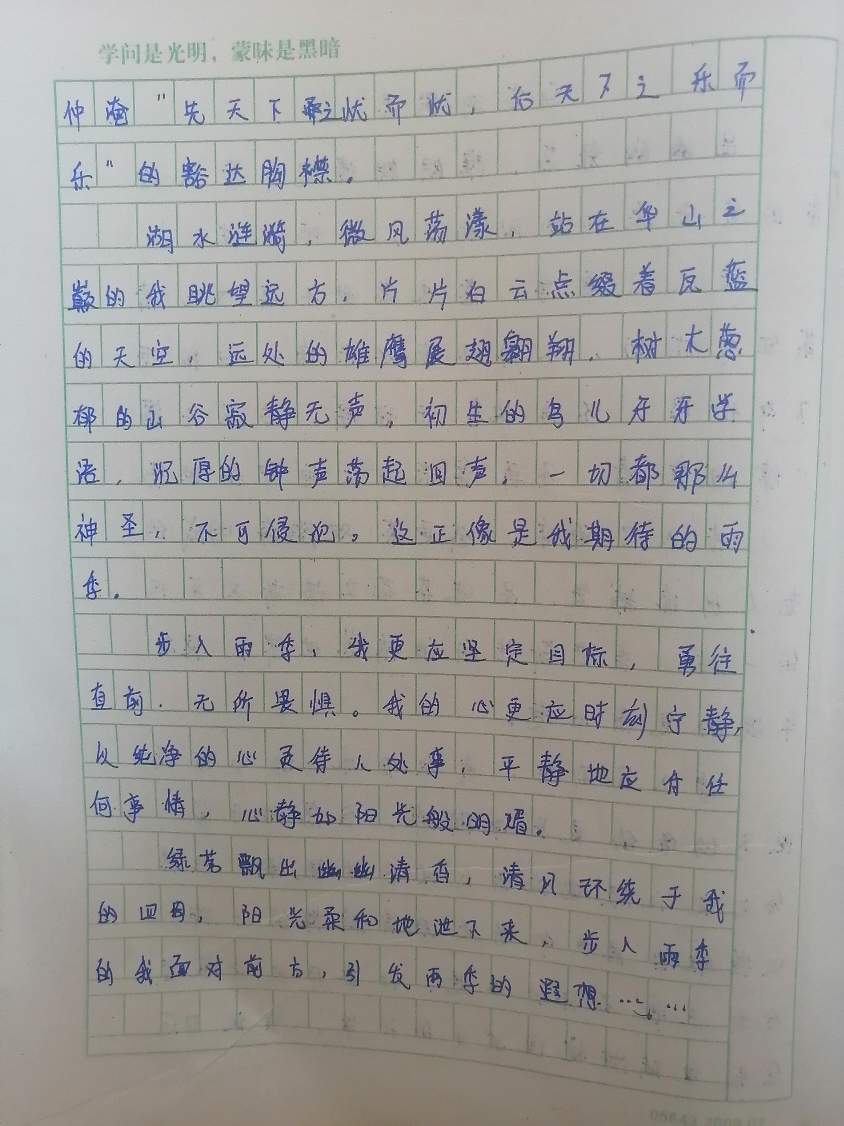 学问是光明，蒙昧是黑暗
仲淹"先天下之忧而忧，后天下之乐而
乐"的豁达胸襟。
湖水涟漪，微风荡漾，站在华山之
巅的我眺望远方，片片白云点缀着瓦蓝
的天空，远处的雄鹰展翅翱翔，树木葱
郁的山谷寂静无声，初生的鸟儿牙牙学
语，沉厚的钟声荡起回声，一切都那么
神圣，不可侵犯。这正像是我期待的雨
季。
步入雨季，我更应坚定目标，勇往
直前，无所畏惧。我的心更应时刻宁静，
以纯净的心灵待人处事，平静地应付任
何事情，心静如阳光般明媚。
绿茗飘出幽幽清香，清风环绕于我
的四周，阳光柔和地泄下来，步入雨季
的我面对前方，引发雨季的遐想……